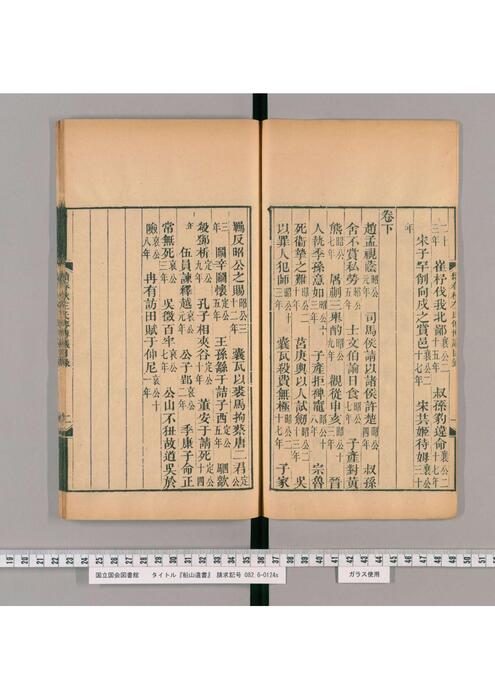 二十三年 崔杼伐我北鄙襄公二十五年 叔孫豹違命襄公二十七年
宋子罕削向戌之賞邑襄公二十七年 宋共姬待姆襄公三十年
卷下
趙孟視蔭昭公元年 司馬侯請以諸侯許楚昭公四年 叔孫
舍不賞私勞昭公五年 士文伯論日食昭公七年 子產對黃
熊昭公七年 屠蒯三舉酌昭公九年 觀從申亥昭公十三年 晉
人執季孫意如昭公十三年 子產拒裨竈昭公十八年 宗魯
死衞縶之難昭公二十年 莒庚輿以人試劍昭公二十三年 吳
以罪人犯師昭公二十三年 囊瓦殺費無極昭公二十七年 子家
羈反昭公之賜昭公三十二年 囊瓦以裘馬拘蔡唐二君定公
三年 鬬辛鬬懷定公五年 王孫繇于詰子西定公五年 駟歂
殺鄧析定公九年 孔子相夾谷定公十年 董安于請死定公十四
年 伍員諫釋越哀公元年 公子郢哀公二年 季康子命正
常無死哀公三年 吳徵百牢哀公七年 公山不狃故道吳於
險哀公八年 冉有訪田賦于仲尼哀公十一年
国立国会図書館 タイトル『船山遺書』 請求記号 082.6-O124s
ガラス使用